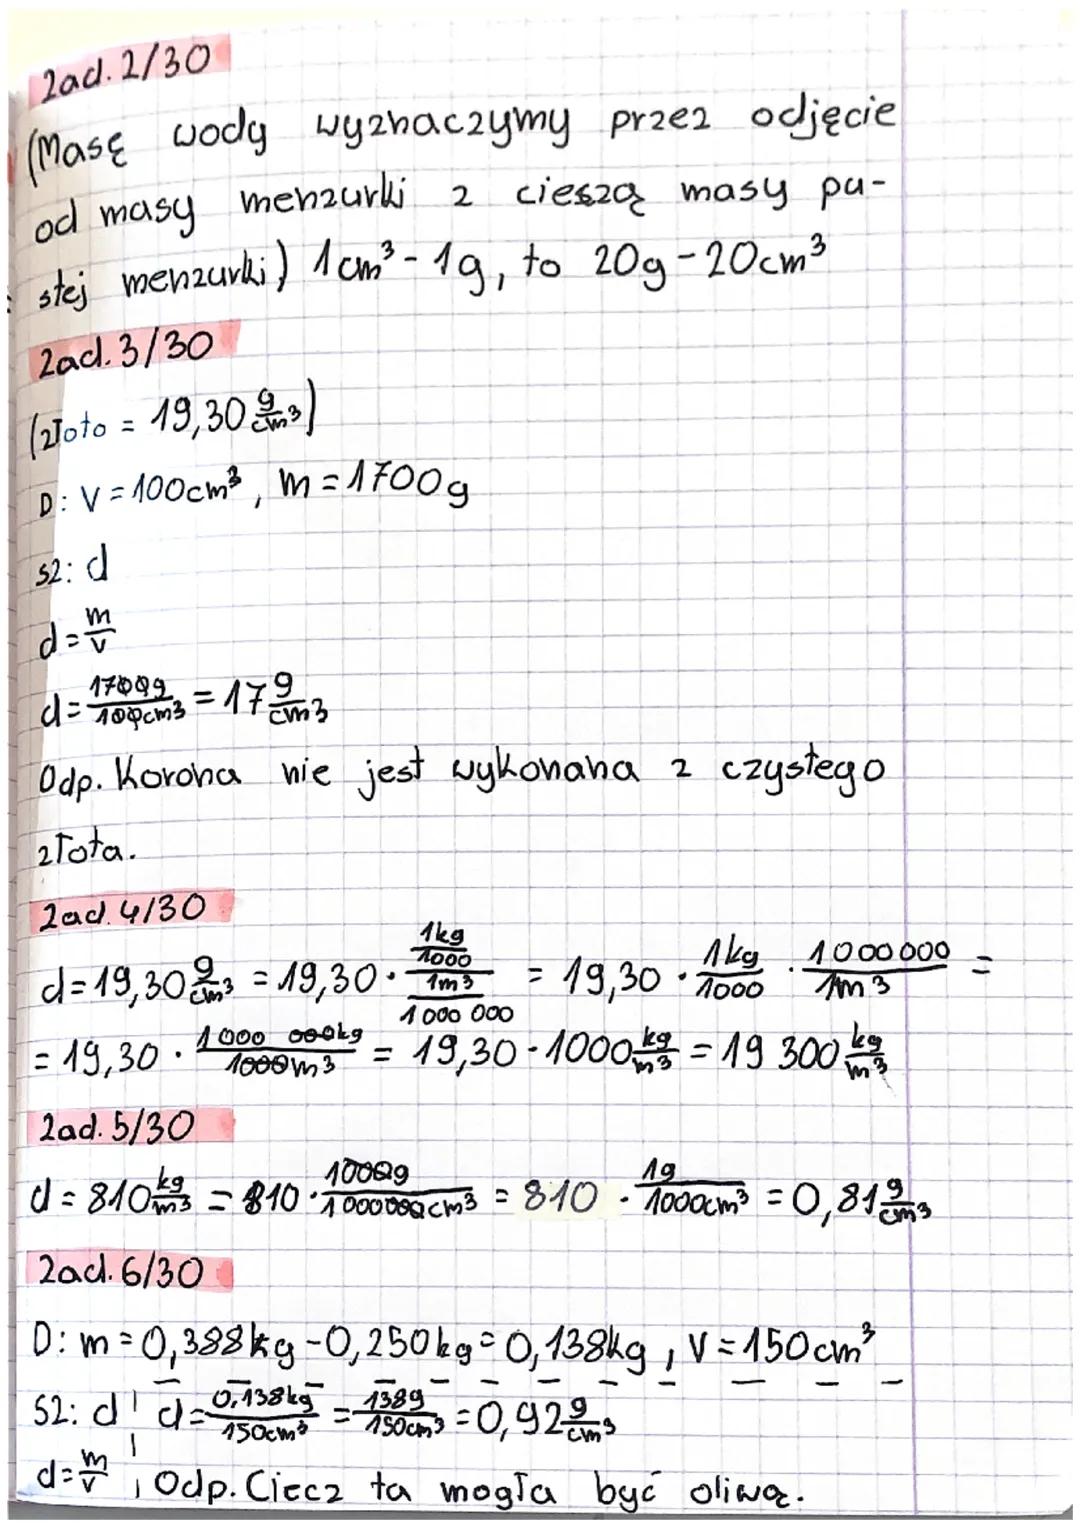 Zad. 2/30
(Masę wody wyznaczymy przez odjęcie
od masy menzurki z cieszą masy pu-
stej menzurki) 1cm³ - 1g, to 20g - 20cm³
Zad. 3/30
(złoto = 19,30 g/cm³)
D: V = 100cm³, m = 1700g
Sz: d
d = m/v
d = 1700g/100cm³ = 17 g/cm³
Odp. Korona nie jest wykonana z czystego
złota.
Zad. 4/30
d = 19,30 g/cm³ = 19,30 · (1kg/1000)/(1m³/1 000 000) = 19,30 · 1kg/1000 · 1 000 000/1m³ =
= 19,30 · 1 000 000kg/1000m³ = 19,30 · 1000 kg/m³ = 19 300 kg/m³
Zad. 5/30
d = 810 kg/m³ = 810 · 1000g/1000000cm³ = 810 · 1g/1000cm³ = 0,81 g/cm³
Zad. 6/30
D: m = 0,388kg - 0,250kg = 0,138kg, V = 150cm³
Sz: d d = 0,138kg/150cm³ = 138g/150cm³ = 0,92 g/cm³
d = m/v Odp. Ciecz ta mogła być oliwą.